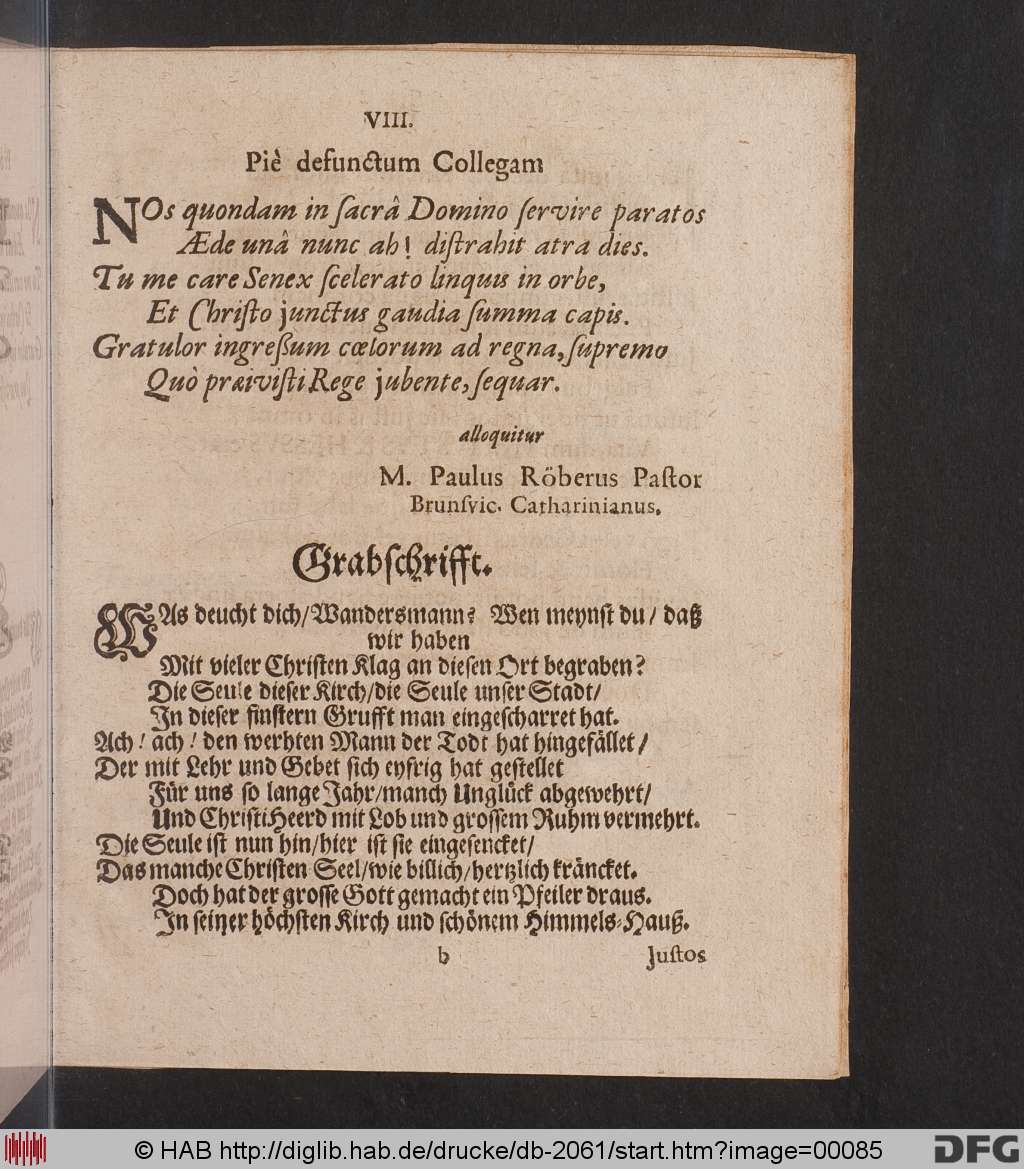 VIII.
Piè defunctum Collegam
NOs quondam in ſacrâ Domino ſervire paratos
Æde unâ nunc ah! diſtrahit atra dies.
Tu me care Senex ſcelerato linquis in orbe,
Et Chriſto junctus gaudia ſumma capis.
Gratulor ingreßum cœlorum ad regna, ſupremo
Quò præiviſti Rege jubente, ſequar.
alloquitur
M. Paulus Röberus Paſtor
Brunſvic. Catharinianus.
Grabſchrifft.
WAs deucht dich/Wandersmann? Wen meynſt du/ daß
wir haben
Mit vieler Chriſten Klag an dieſen Ort begraben?
Die Seule dieſer Kirch/die Seule unſer Stadt/
In dieſer finſtern Grufft man eingeſcharret hat.
Ach! ach! den werhten Mann der Todt hat hingefället/
Der mit Lehr und Gebet ſich eyfrig hat geſtellet
Für uns ſo lange Jahr/manch Unglück abgewehrt/
Und Chriſti Heerd mit Lob und groſſem Ruhm vermehrt.
Die Seule iſt nun hin/hier iſt ſie eingeſencket/
Das manche Chriſten Seel/wie billich/hertzlich kräncket.
Doch hat der groſſe Gott gemacht ein Pfeiler draus.
In ſeiner höchſten Kirch und ſchönem Himmels-Hauß.
b Juſtos
© HAB http://diglib.hab.de/drucke/db-2061/start.htm?image=00085
DFG